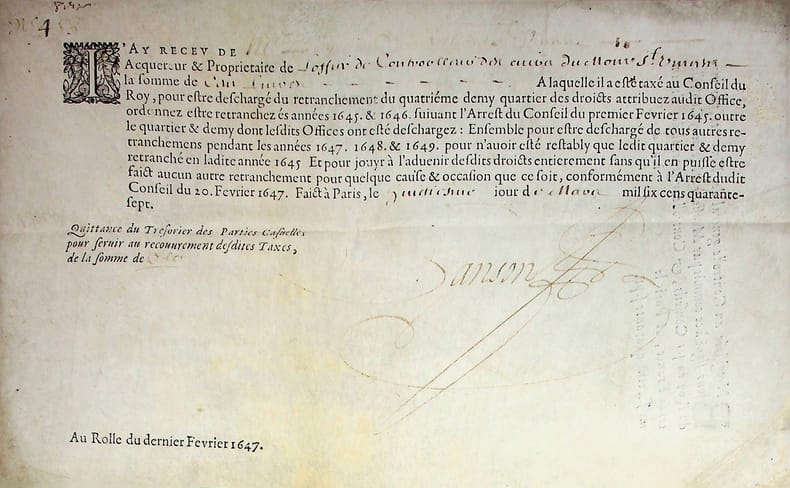 4
I'AY RECEV DE
Acquereur & Proprietaire de
la somme de Cent A laquelle il a esté taxé au Conseil du
Roy, pour estre deschargé du retranchement du quatriéme demy quartier des droicts attribuez audit Office,
ordennez estre retranchez és années 1645. & 1646. suiuant l'Arrest du Conseil du premier Fevrier 1645. outre
le quartier & demy dont lesdits Offices ont esté deschargez : Ensemble pour estre deschargé de tous autres re-
tranchemens pendant les années 1647. 1648. & 1649. pour n'auoir esté restably que ledit quartier & demy
retranché en ladite année 1645 Et pour jouyr à l'aduenir desdits droicts entierement sans qu'il en puisse estre
faict aucun autre retranchement pour quelque cause & occasion que ce soit, conformément à l'Arrest dudit
Conseil du 20. Fevrier 1647. Faict à Paris, le jour de mil six cens quarante-
sept.
Quittance du Tresorier des Parties Casuelles
pour seruir au recouurement desdites Taxes,
de la somme de
Sanson
Au Rolle du dernier Fevrier 1647.